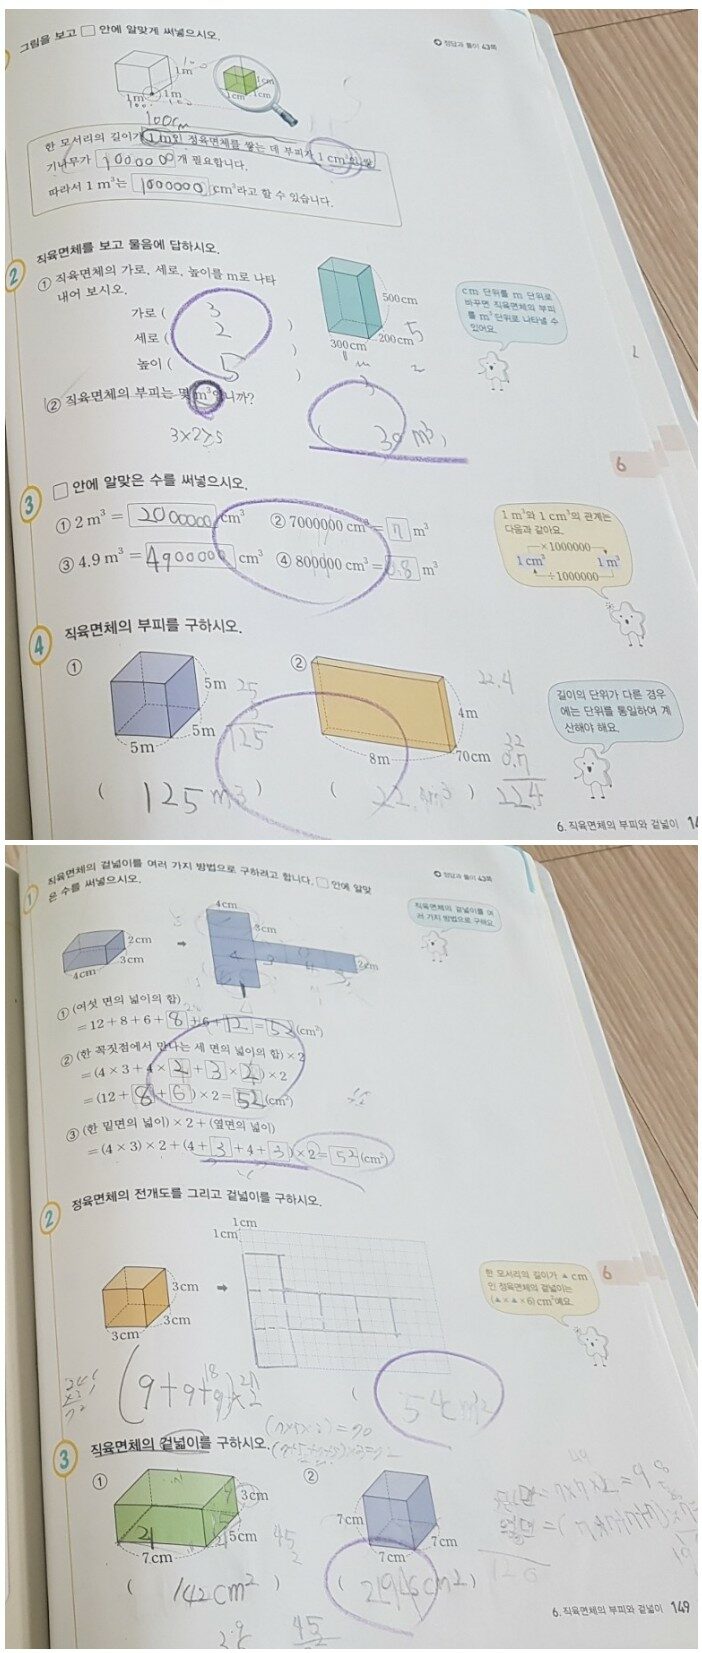 그림을 보고 □ 안에 알맞게 써넣으시오.
정답과 풀이 43쪽
1m
1m
1m
1cm
1cm
1cm
100cm
한 모서리의 길이가 1 m인 정육면체를 쌓는 데 부피가 1 cm³인 쌓
기나무가 1000000 개 필요합니다.
따라서 1 m³는 1000000 cm³라고 할 수 있습니다.
2 직육면체를 보고 물음에 답하시오.
① 직육면체의 가로, 세로, 높이를 m로 나타
내어 보시오.
가로 ( 3 )
세로 ( 2 )
높이 ( 5 )
500cm
200cm
300cm
cm 단위를 m 단위로
바꾸면 직육면체의 부피
를 m³ 단위로 나타낼 수
있어요.
② 직육면체의 부피는 몇 m³입니까?
3×2×5
( 30 m3 )
6
3 □ 안에 알맞은 수를 써넣으시오.
① 2 m³ = 2000000 cm³ ② 7000000 cm³ = 7 m³
③ 4.9 m³ = 4900000 cm³ ④ 800000 cm³ = 0.8 m³
1 m³와 1 cm³의 관계는
다음과 같아요.
×1000000
1 cm³ 1 m³
÷1000000
4 직육면체의 부피를 구하시오.
① ②
5m
5m
5m
25
5
125
4m
8m
70cm
22.4
32
0.7
22.4
길이의 단위가 다른 경우
에는 단위를 통일하여 계
산해야 해요.
( 125 m3 ) ( 22.4m3 )
6. 직육면체의 부피와 겉넓이
1 직육면체의 겉넓이를 여러 가지 방법으로 구하려고 합니다. □ 안에 알맞
은 수를 써넣으시오.
정답과 풀이 43쪽
직육면체의 겉넓이를 여
러 가지 방법으로 구해요.
2cm
3cm
4cm
4cm
3cm
2cm
① (여섯 면의 넓이의 합)
= 12 + 8 + 6 + 8 + 6 + 12 = 52 (cm²)
② (한 꼭짓점에서 만나는 세 면의 넓이의 합) × 2
= (4 × 3 + 4 × 2 + 3 × 2) × 2
= (12 + 8 + 6) × 2 = 52 (cm²)
③ (한 밑면의 넓이) × 2 + (옆면의 넓이)
= (4 × 3) × 2 + (4 + 3 + 4 + 3) × 2 = 52 (cm²)
2 정육면체의 전개도를 그리고 겉넓이를 구하시오.
1cm
1cm
3cm
3cm
3cm
한 모서리의 길이가 ▲ cm
인 정육면체의 겉넓이는
(▲×▲×6) cm²예요.
6
(9+9+9)×2
( 54cm2 )
3 직육면체의 겉넓이를 구하시오.
① ②
3cm
5cm
7cm
7cm
7cm
7cm
( 142cm2 )
6. 직육면체의 부피와 겉넓이 149